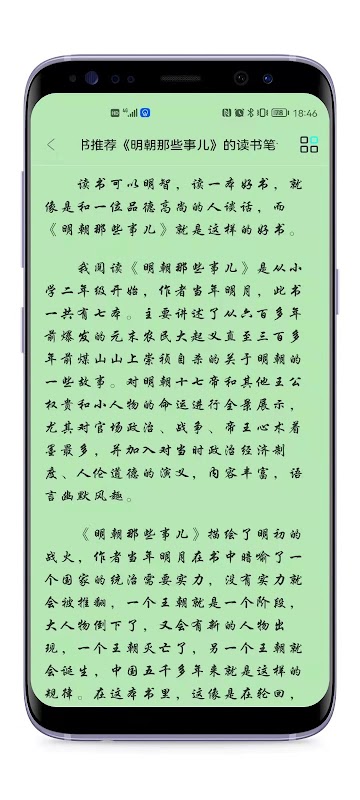 18:46
书推荐《明朝那些事儿》的读书笔
读书可以明智，读一本好书，就
像是和一位品德高尚的人谈话，而
《明朝那些事儿》就是这样的好书。
我阅读《明朝那些事儿》是从小
学二年级开始，作者当年明月，此书
一共有七本。主要讲述了从六百多年
前爆发的元末农民大起义直至三百多
年前煤山山上崇祯自杀的关于明朝的
一些故事。对明朝十七帝和其他王公
权贵和小人物的命运进行全景展示，
尤其对官场政治、战争、帝王心术着
墨最多，并加入对当时政治经济制
度、人伦道德的演义，内容丰富，语
言幽默风趣。
《明朝那些事儿》描绘了明初的
战火，作者当年明月在书中暗喻了一
个国家的统治需要实力，没有实力就
会被推翻，一个王朝就是一个阶段，
大人物倒下了，又会有新的人物出
现，一个王朝灭亡了，另一个王朝就
会诞生，中国五千多年来就是这样的
规律。在这本书里，这像是在轮回，